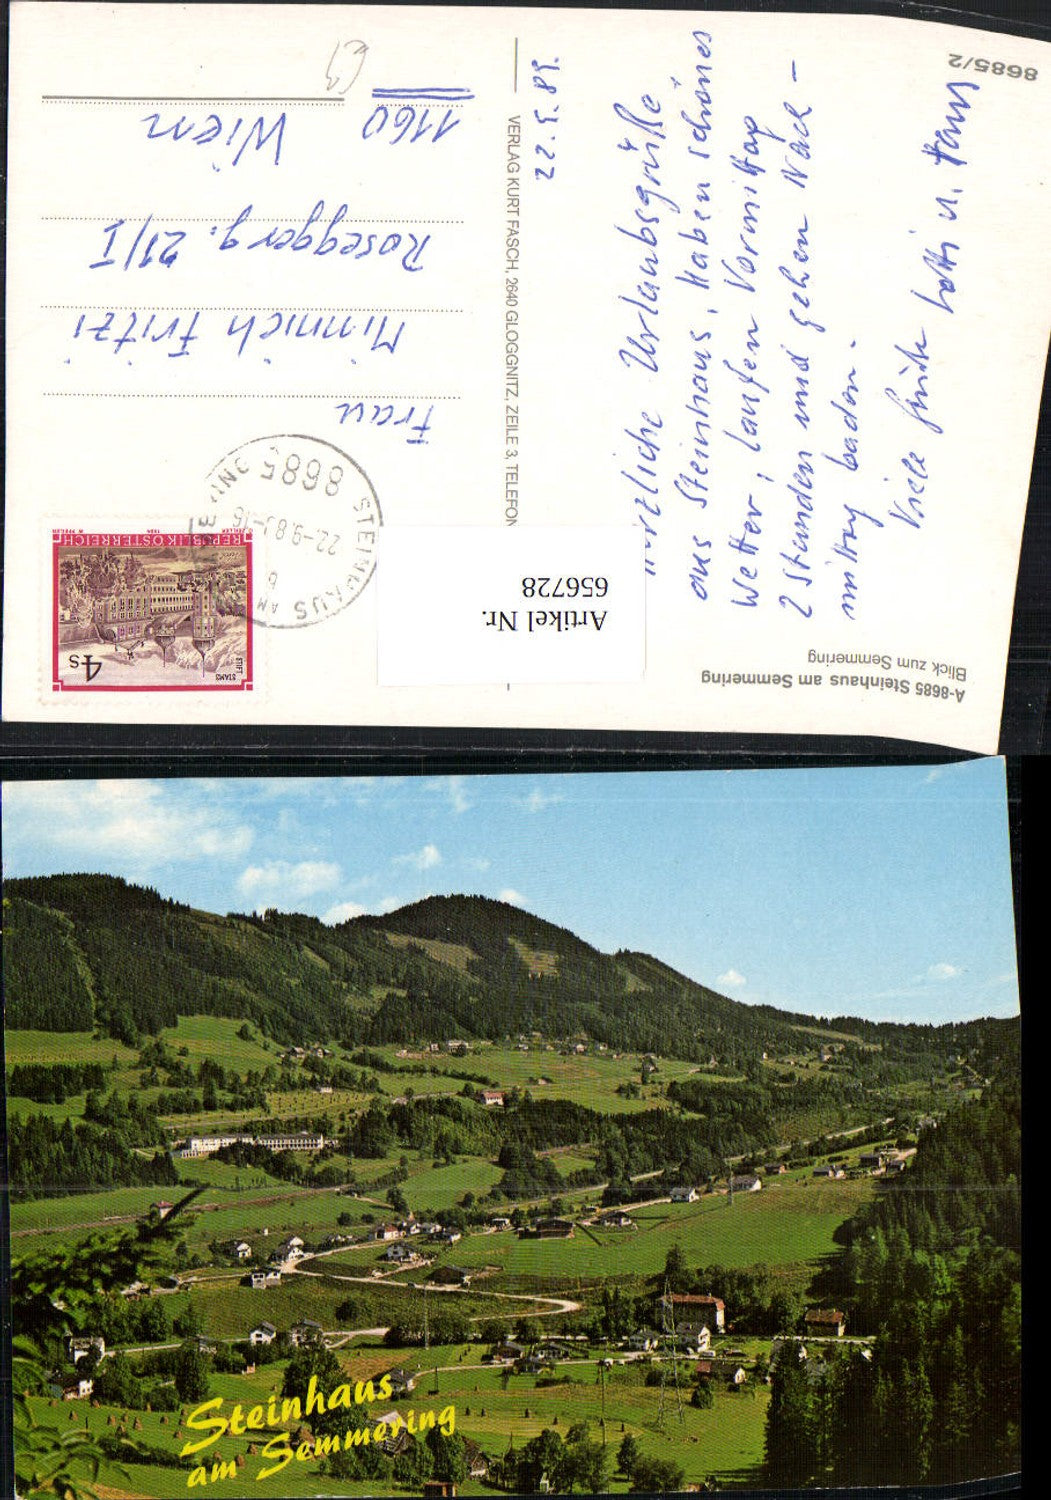 8685/2
A-8685 Steinhaus am Semmering
Blick zum Semmering
22. 9. 89.
Herzliche Urlaubsgrüße
aus Steinhaus. Haben schönes
Wetter, laufen Vormittag
2 Stunden und gehen Nach-
mittag baden.
Viele Grüße Lotti u. Hans
VERLAG KURT FASCH, 2640 GLOGGNITZ, ZEILE 3, TELEFON
Artikel Nr.
656728
STIFT STAMS
4 S
REPUBLIK ÖSTERREICH
STEINHAUS AM
8685
22.-9.89-16
Frau
Minnich Fritzi
Roseggerg. 21/I
1160 Wien
Steinhaus
am Semmering